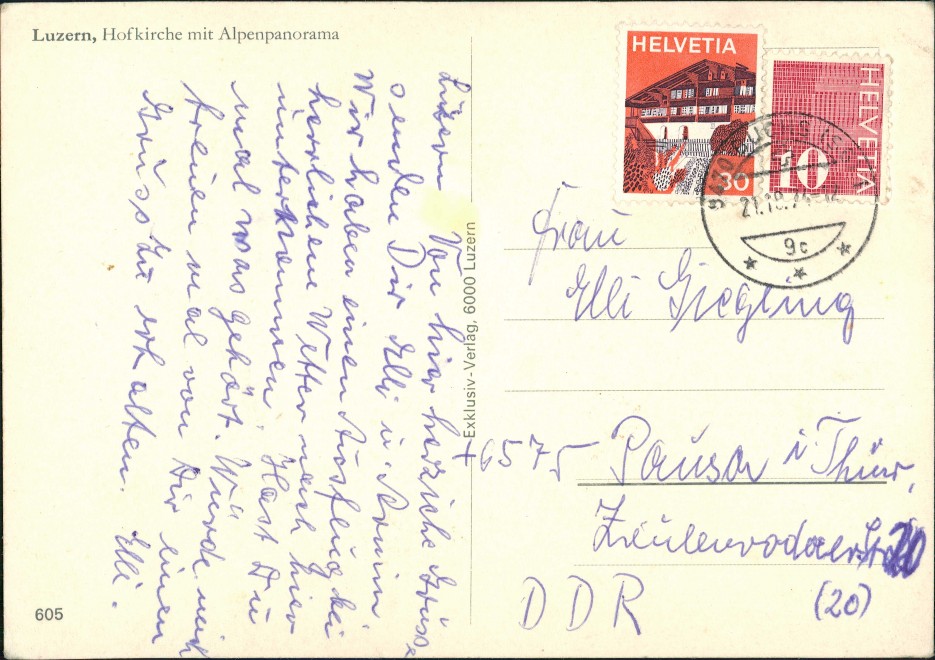 Luzern, Hofkirche mit Alpenpanorama
Luzern Von hier herzliche Grüsse
senden Dir Elli u. Armin.
Wir haben einen Ausflug bei
herrlichem Wetter nach hier
unternommen. Hast Du
mal was gehört. Würde mich
freuen mal von Dir einen
Gruss zu erhalten. Elli.
605
Exklusiv-Verlag, 6000 Luzern
HELVETIA
30
HELVETIA
10
9470 BUCHS
21.10.74-12
9c
Frau
Elli Giegling
+6575 Pausa i. Thür,
Zeulenrodaerstr 20
(20)
DDR